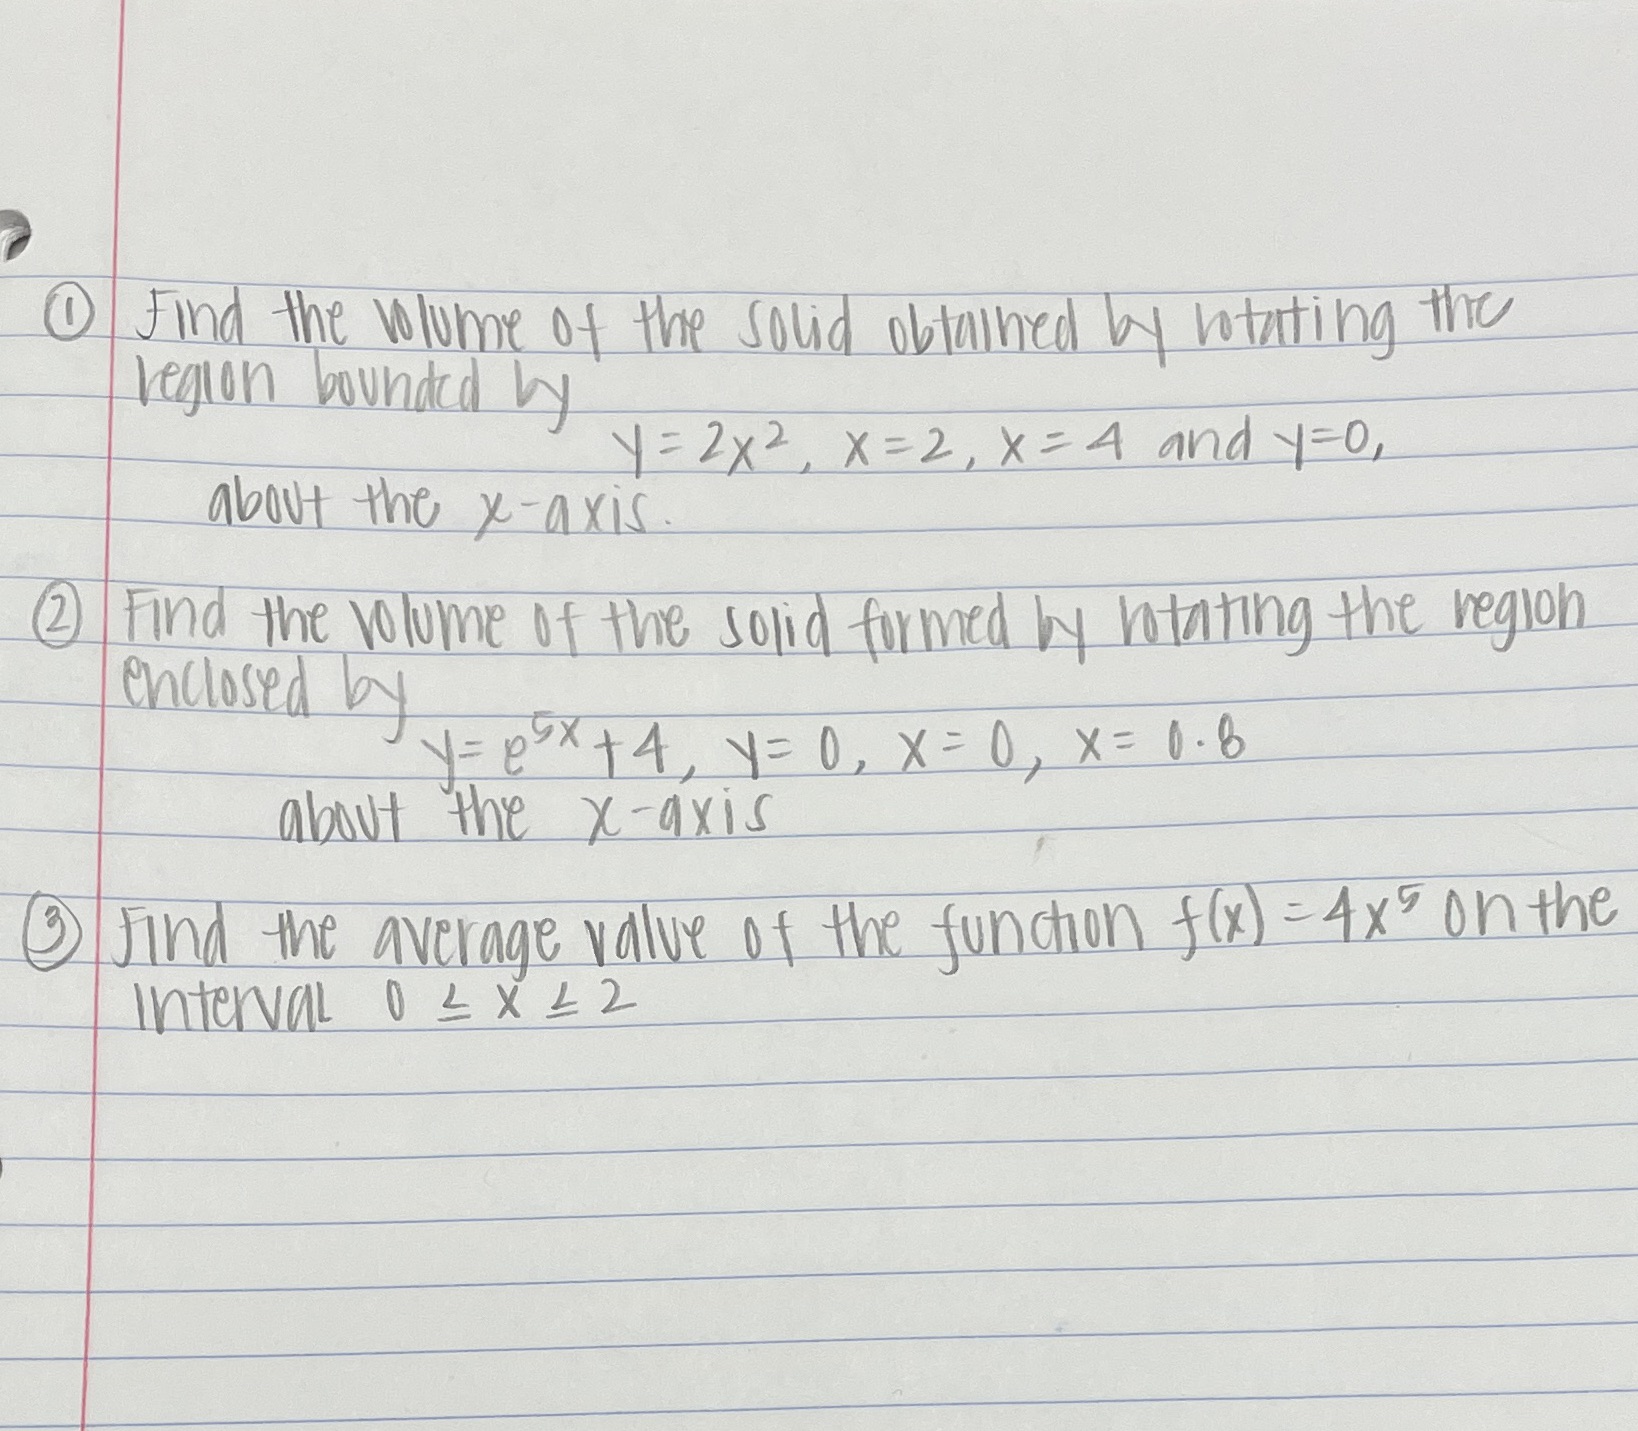 ① Find the volume of the solid obtained by rotating the
region bounded by
y = 2x², x = 2, x = 4 and y=0,
about the x-axis.
② Find the volume of the solid formed by rotating the region
enclosed by
y = e⁵ˣ + 4, y = 0, x = 0, x = 0.8
about the x-axis
③ Find the average value of the function f(x) = 4x⁵ on the
interval 0 ≤ x ≤ 2